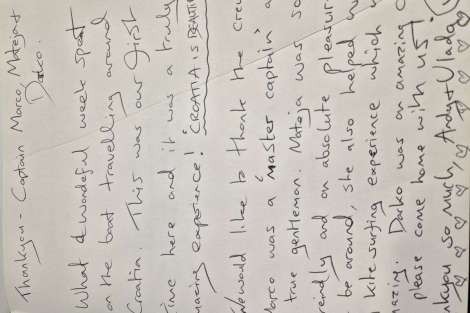 Thankyou - Captain Marco, Mateja &
Darko.
What a wonderful week spent
on the boat travelling around
Croatia. This was our first
time here and it was a truly
amazing experience! CROATIA IS BEAUTIFUL
We would like to thank the crew
Marco was a "master captain" a
true gentleman. Mateja was so
friendly and an absolute pleasure
be around, she also helped
kite surfing experience which
amazing. Darko was an amazing
please come home with us!
Thankyou so much, Andy & Vlada